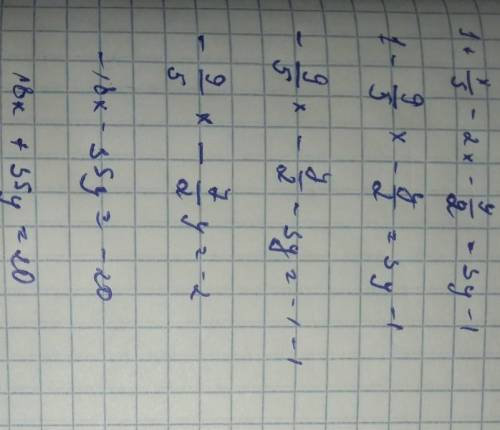 1 + x/5 - 2x - y/2 = 5y - 1
1 - 9/5 x - y/2 = 5y - 1
- 9/5 x - y/2 - 5y = -1 - 1
- 9/5 x - 7/2 y = -2
-18x - 55y = -20
18x + 55y = 20